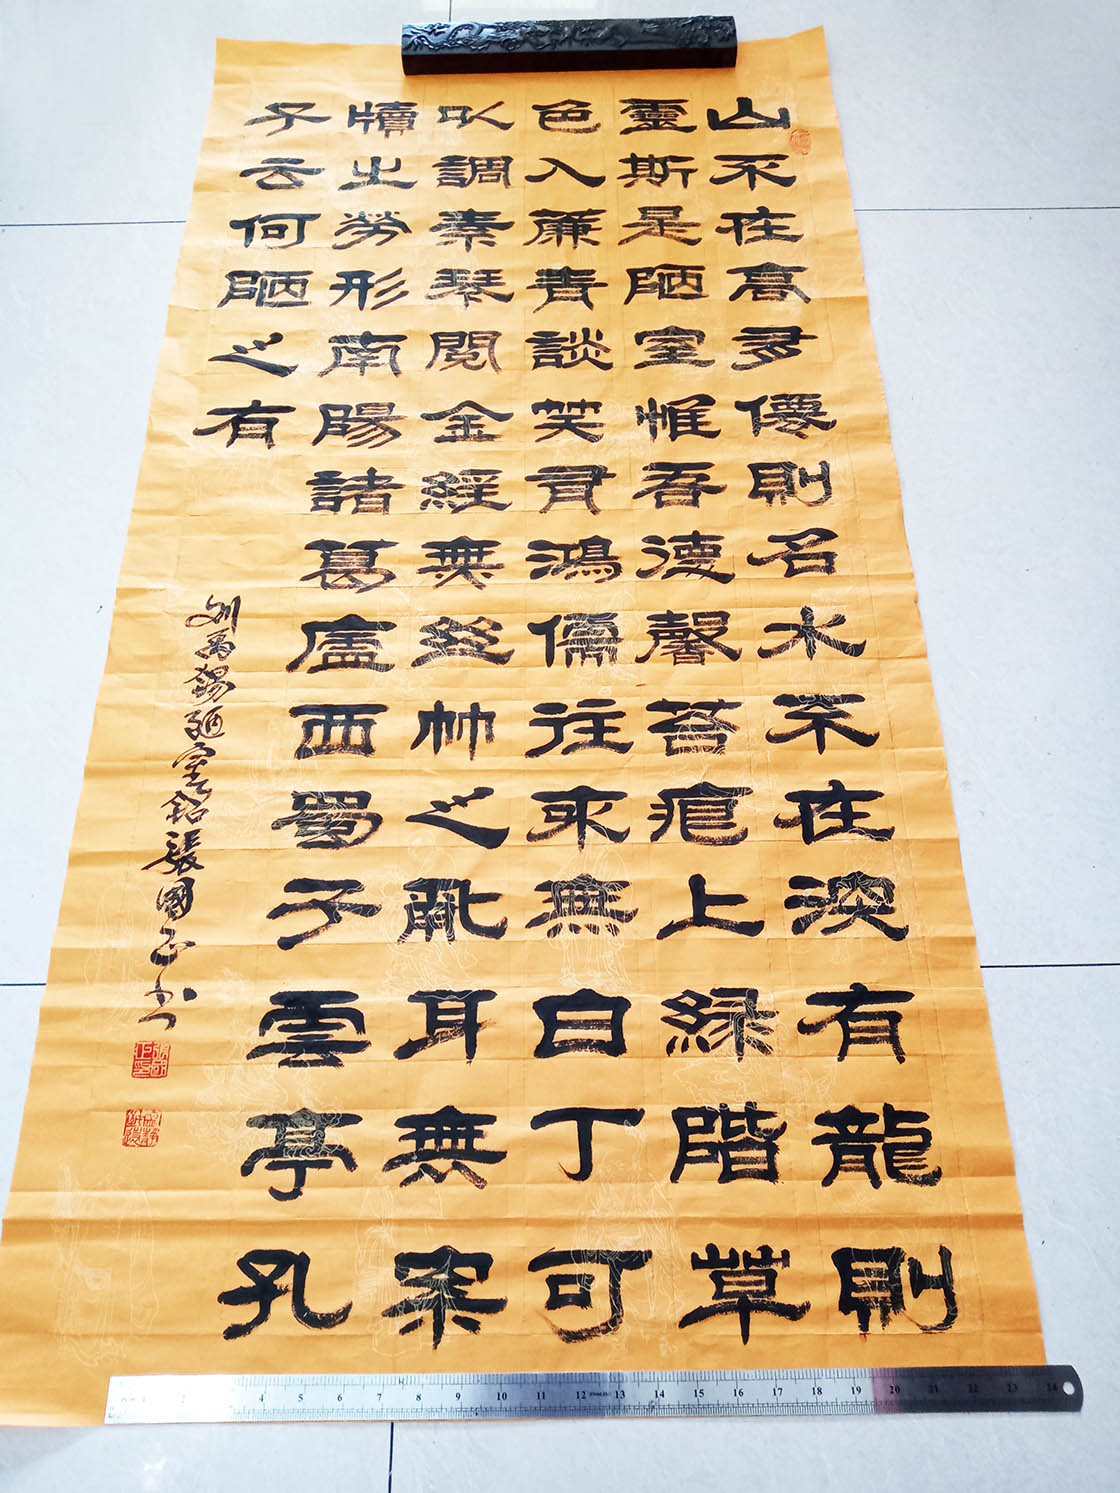 山不在高有僊則名水不在深有龍則
靈斯是陋室惟吾德馨苔痕上緑階草
色入簾青談笑有鴻儒往來無白丁可
以調素琴閱金經無絲竹之亂耳無案
牘之勞形南陽諸葛廬西蜀子雲亭孔
子云何陋之有
劉禹錫陋室銘張國正书
1 2 4 5 6 7 8 9 10 11 12 13 14 15 16 17 18 19 20 21 22 23 24